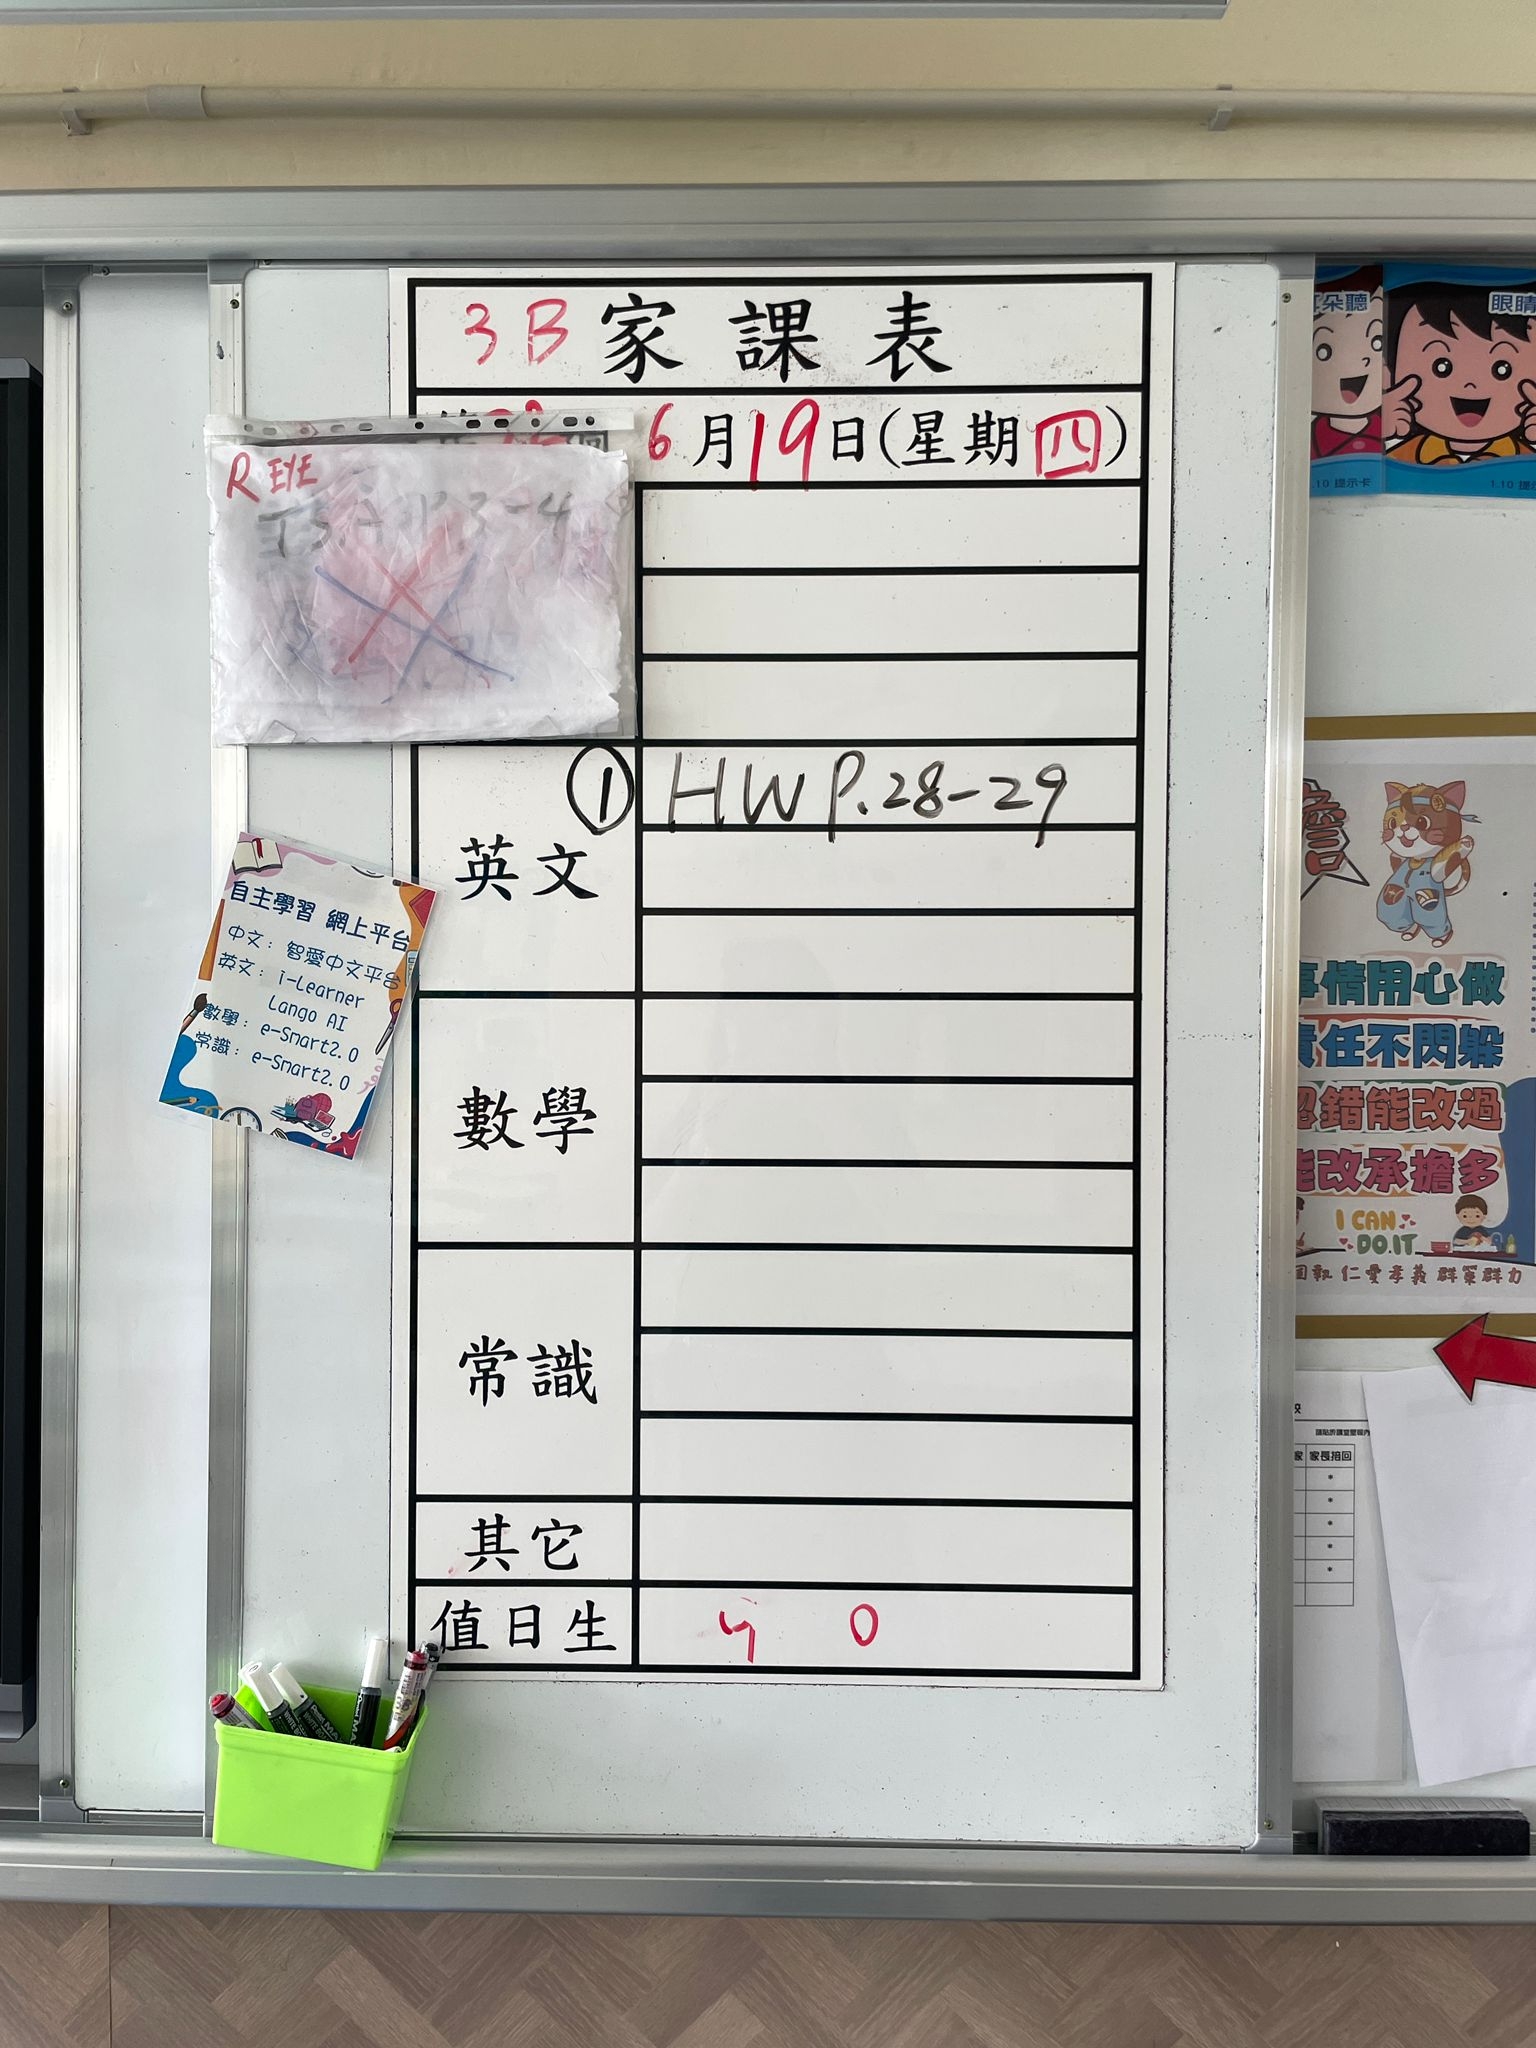 3B 家課表
6月19日(星期四)
R EYE
① HW P.28-29
英文
數學
常識
其它
值日生
自主學習 網上平台
中文：智愛中文平台
英文：i-Learner
Lango AI
數學：e-Smart2.0
常識：e-Smart2.0
朵聽
眼睛
1.10 提示卡
事情用心做
責任不閃躲
認錯能改過
能改承擔多
I CAN
DO IT
仁愛孝義 群策群力
家長接回